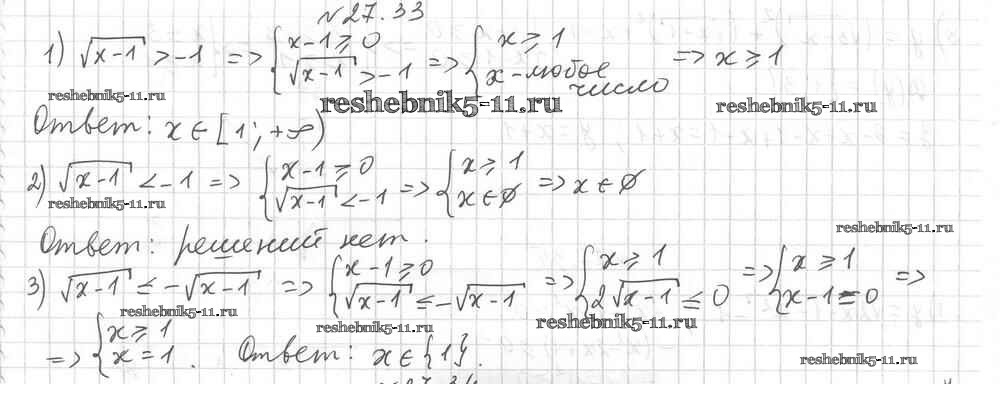 №27.33
1) √(x-1) > -1 => { x-1 ⩾ 0; √(x-1) > -1 => { x ⩾ 1; x - любое число => x ⩾ 1
reshebnik5-11.ru reshebnik5-11.ru reshebnik5-11.ru
Ответ: x ∈ [1; +∞)
2) √(x-1) < -1 => { x-1 ⩾ 0; √(x-1) < -1 => { x ⩾ 1; x ∈ ∅ => x ∈ ∅
reshebnik5-11.ru
reshebnik5-11.ru
Ответ: решений нет.
3) √(x-1) ≤ -√(x-1) => { x-1 ⩾ 0; √(x-1) ≤ -√(x-1) => { x ⩾ 1; 2√(x-1) ≤ 0 => { x ⩾ 1; x-1 = 0 =>
reshebnik5-11.ru reshebnik5-11.ru reshebnik5-11.ru
=> { x ⩾ 1; x = 1. Ответ: x ∈ {1}.
reshebnik5-11.ru